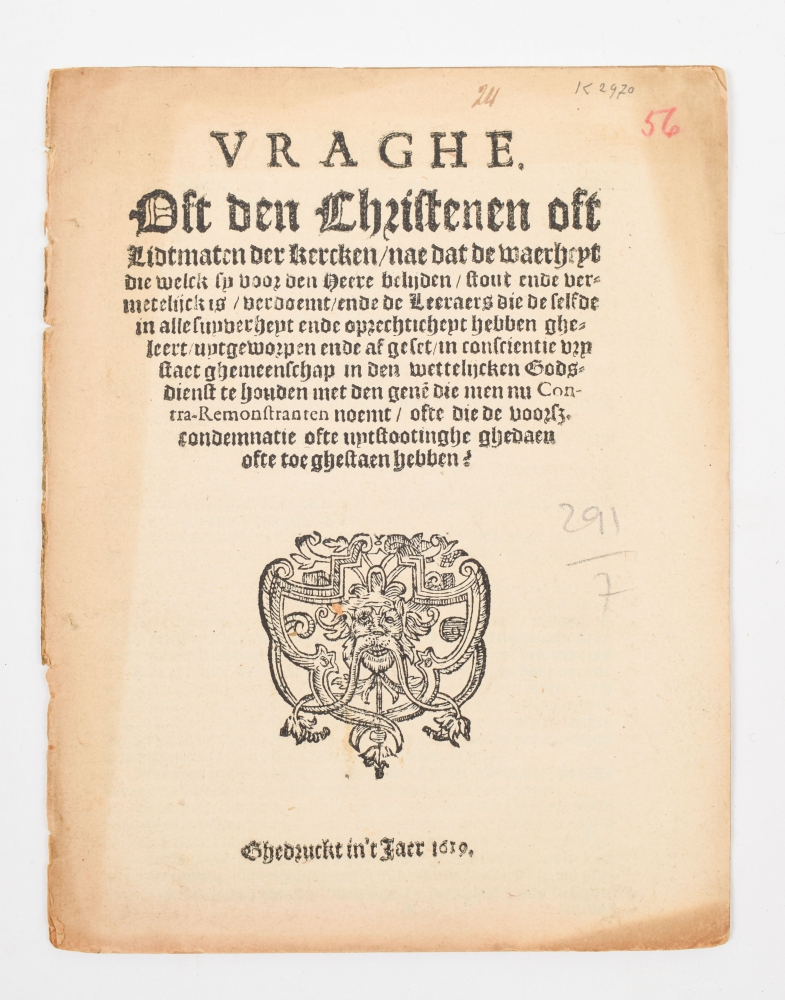 24
K 2970
56
VRAGHE.
Oft den Christenen oft
Lidtmaten der Kercken/nae dat de waerheyt
die welck sy voor den Heere belijden/stout ende ver-
metelijck is/verdoemt/ende de Leeraers die de selfde
in alle suyverheyt ende oprechticheyt hebben ghe-
leert/uytgeworpen ende af geset/in conscientie vry
staet ghemeenschap in den wettelijcken Gods-
dienst te houden met den genē die men nu Con-
tra-Remonstranten noemt/ofte die de voorsz.
condemnatie ofte uytstootinghe ghedaen
ofte toe ghestaen hebben?
291
7
Ghedruckt in't Jaer 1619.